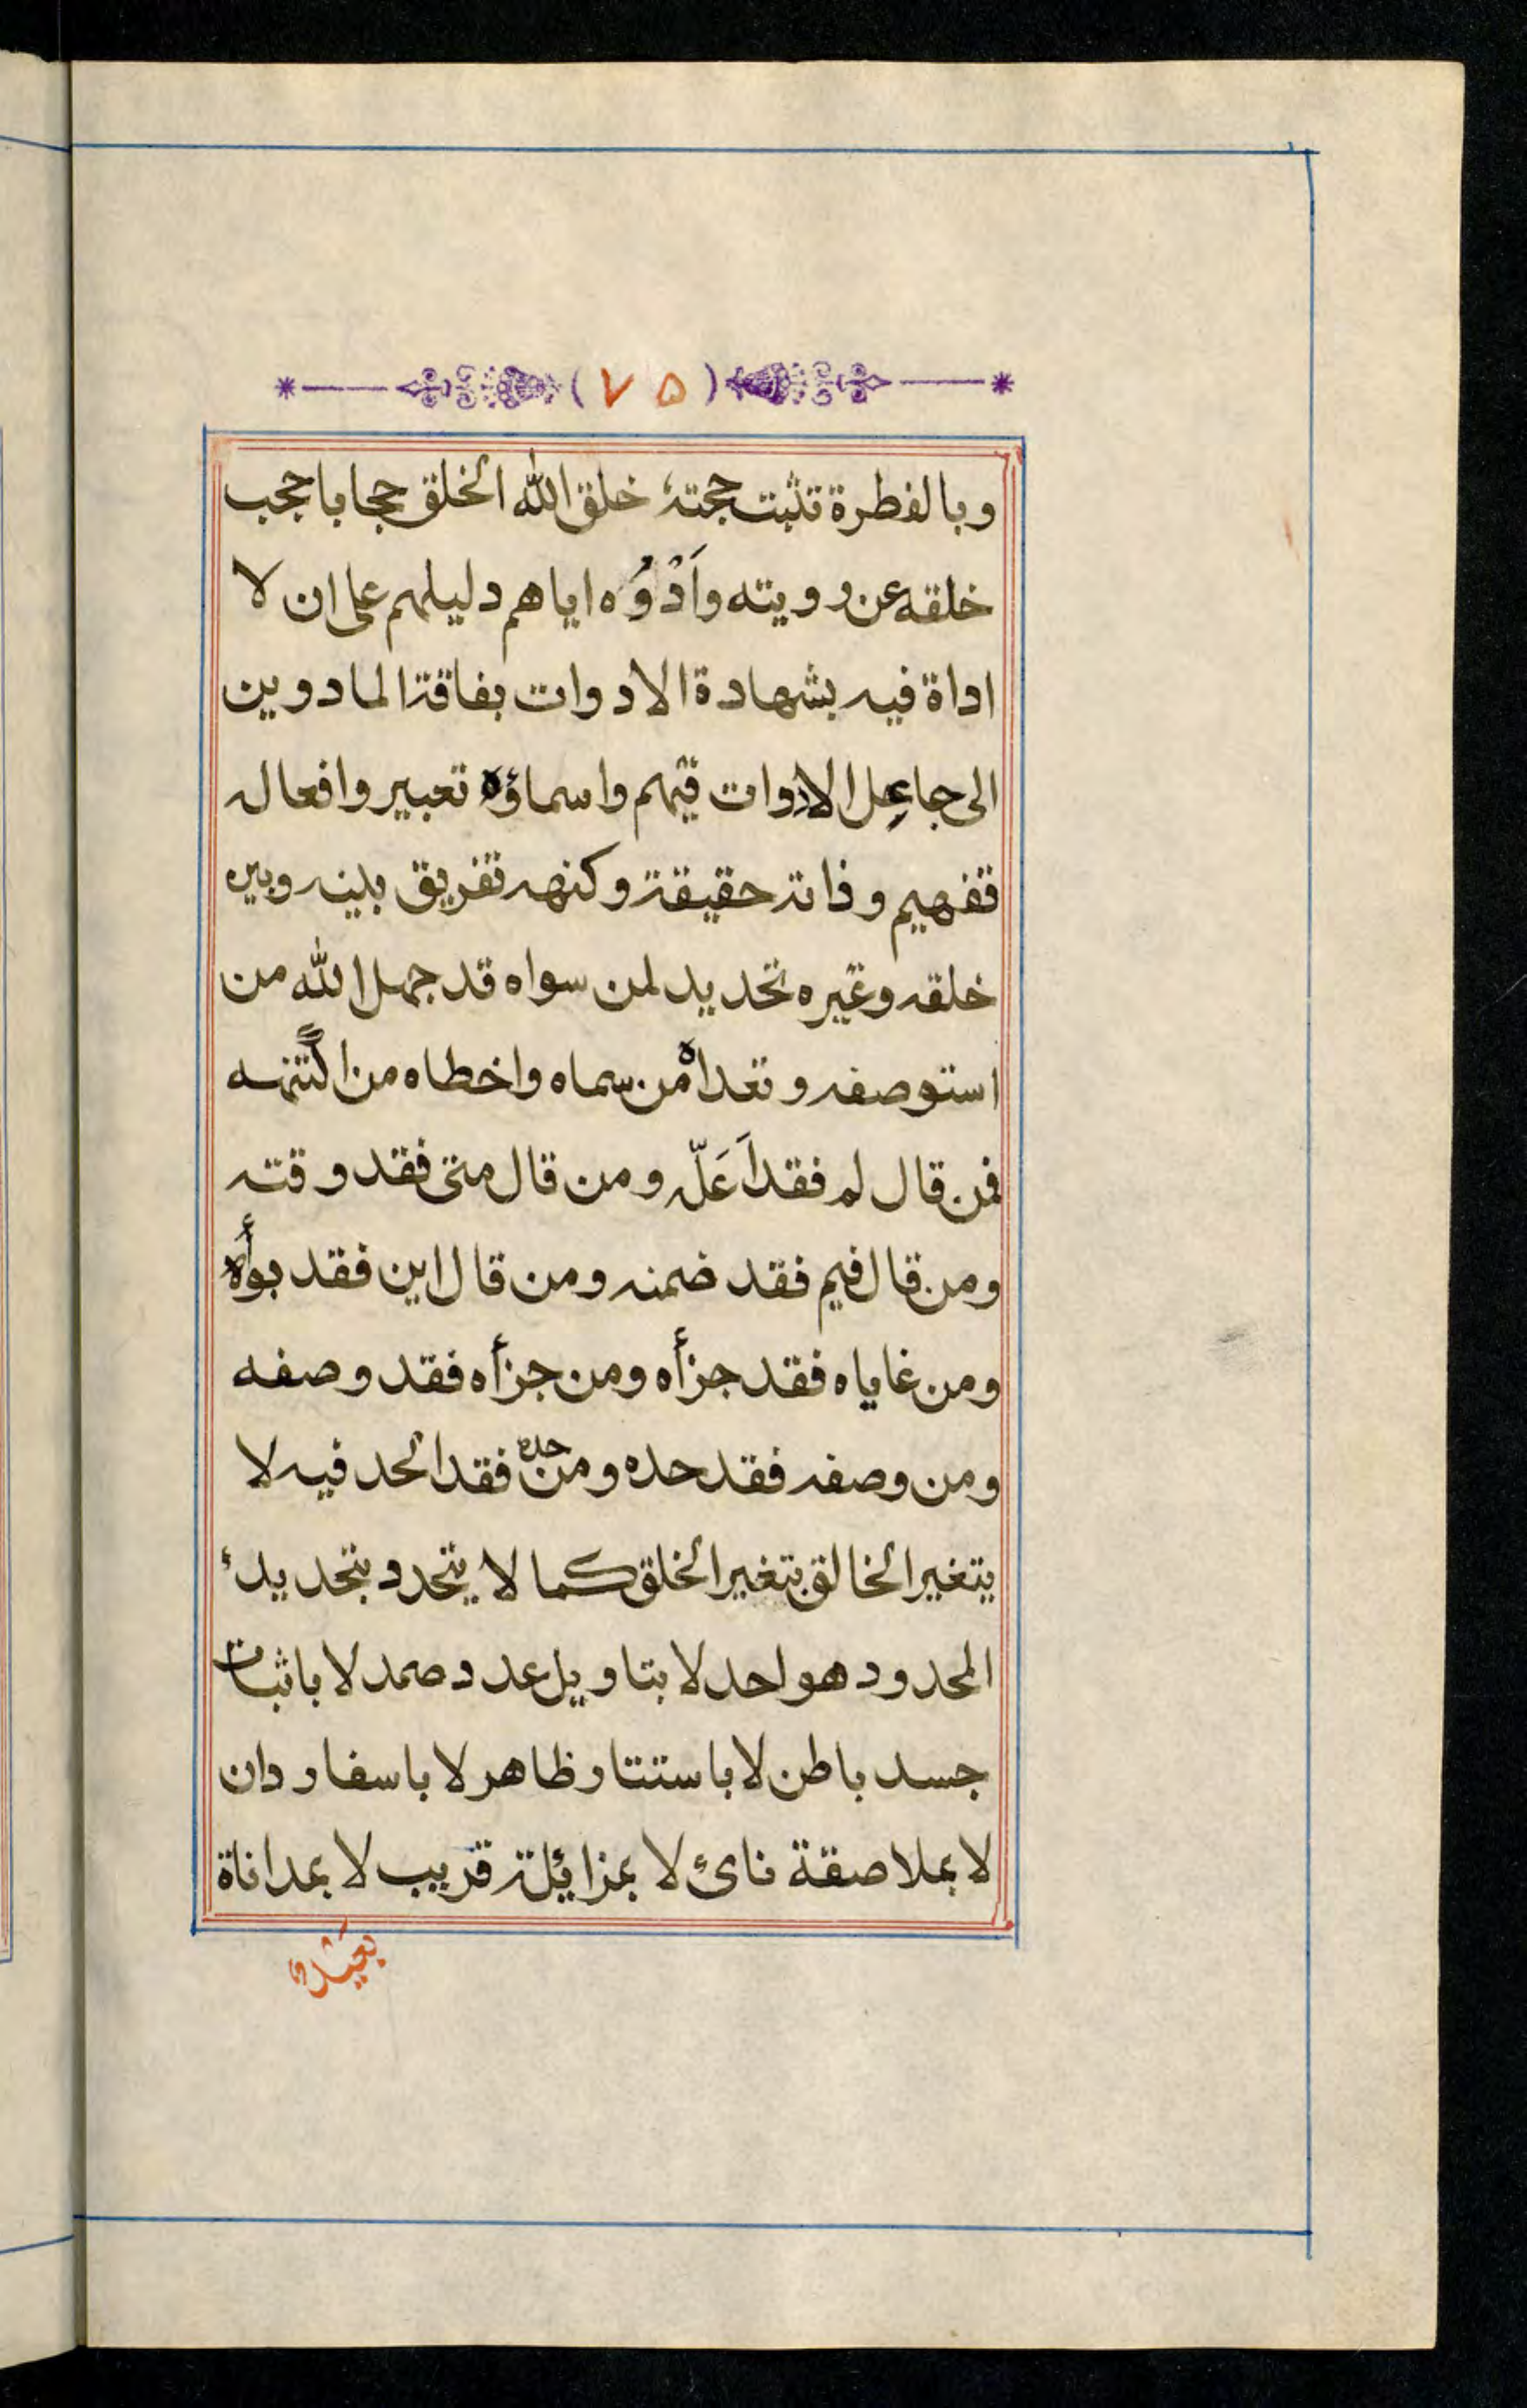 (۷۵)
وبالفطرة تثبت حجته خلق الله الخلق حجابا حجب
خلقه عن رويته واَدْوُه اياهم دليلهم على ان لا
اداة فيه بشهادة الادوات بفاقة المادوين
الى جاعل الادوات فيهم واسماؤه تعبير وافعاله
تفهيم وذاته حقيقة وكنهه تفريق بينه وبين
خلقه وغيره تحديد لمن سواه قد جهل الله من
استوصفه وتعداه من سماه واخطاه من اكتنهه
فمن قال لم فقد اَعَلّه ومن قال متى فقد وقته
ومن قال فيم فقد ضمنه ومن قال اين فقد بوأه
ومن غاياه فقد جزأه ومن جزأه فقد وصفه
ومن وصفه فقد حده ومن حده فقد الحد فيه لا
يتغير الخالق بتغير الخلق كما لا يتحدد بتحديد
المحدود هو احد لا بتاويل عدد صمد لا باثبات
جسد باطن لا باستتار ظاهر لا باسفار دان
لا بملاصقة نائ لا بمزائلة قريب لا بمداناة
بعيد